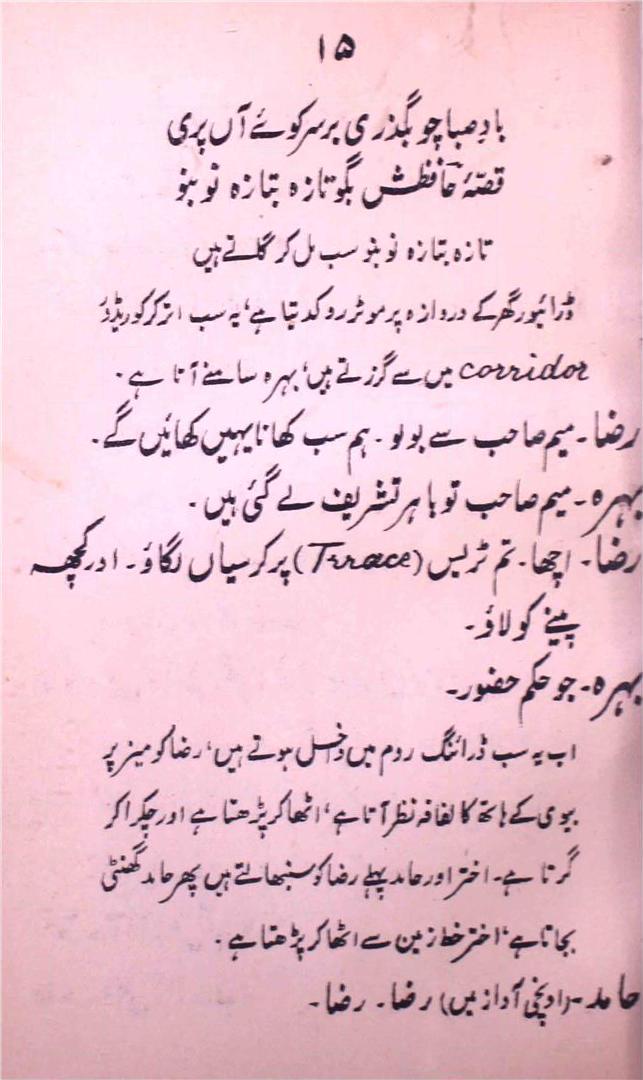 ۱۵
بادِ صبا چو بگذری بر سر کوئے آں پری
قصّۂ حافظش بگو تازہ بتازہ نو بنو
تازہ بتازہ نو بنو سب مل کر گاتے ہیں
ڈرائیور گھر کے دروازہ پر موٹر روکدیتا ہے، یہ سب اتر کر کوریڈور
corridor میں سے گزرتے ہیں، بہرہ سامنے آتا ہے۔
رضا۔ میم صاحب سے بولو۔ ہم سب کھانا یہیں کھائیں گے۔
بہرہ۔ میم صاحب تو باہر تشریف لے گئی ہیں۔
رضا۔ اچھا۔ تم ٹریس (Terrace) پر کرسیاں لگاؤ۔ اور کچھ
پینے کو لاؤ۔
بہرہ۔ جو حکم حضور۔
اب یہ سب ڈرائنگ روم میں داخل ہوتے ہیں، رضا کو میز پر
بیوی کے ہاتھ کا لفافہ نظر آتا ہے، اٹھا کر پڑھتا ہے اور چکرا کر
گرتا ہے۔ اختر اور حامد پہلے رضا کو سنبھالتے ہیں پھر حامد گھنٹی
بجاتا ہے، اختر خط زمین سے اٹھا کر پڑھتا ہے۔
حامد۔ (اونچی آواز میں) رضا۔ رضا۔